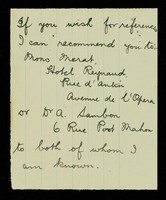 If you wish for reference
I can recommend you to
Mons Merat,
Hotel Reynaud.
Rue d'Antin
Avenue de l'Opera
or Dr A. Sambon
6 Rue Port Mahon
to both of whom I
am known.